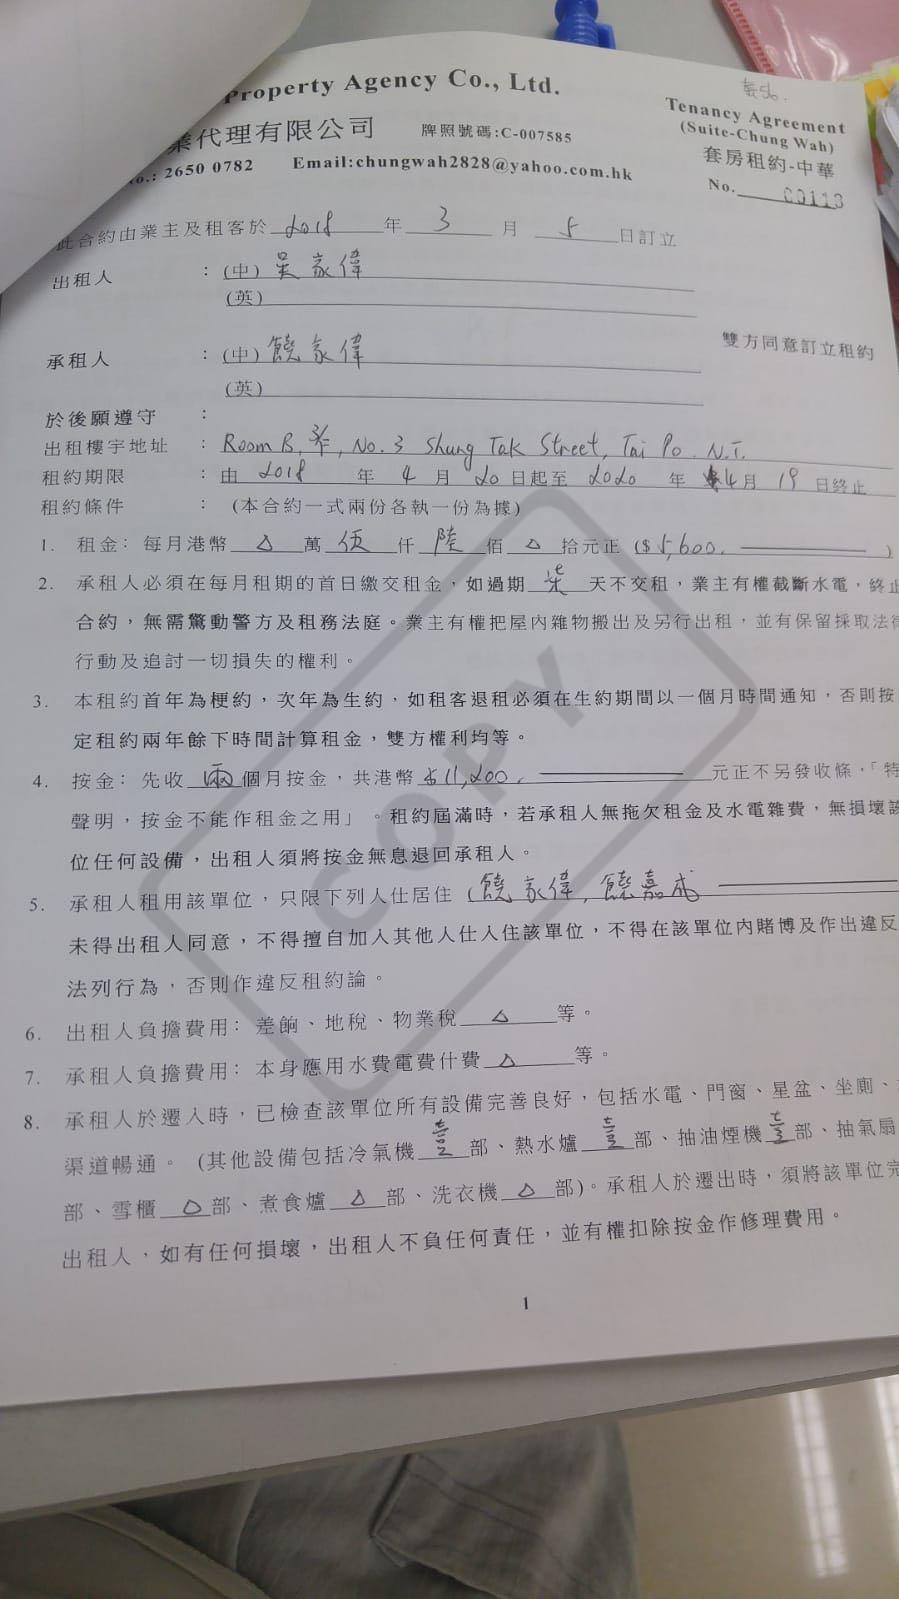 Property Agency Co., Ltd.
業代理有限公司 牌照號碼:C-007585
No.: 2650 0782 Email:chungwah2828@yahoo.com.hk
Tenancy Agreement
(Suite-Chung Wah)
套房租約-中華
No. 00113
此合約由業主及租客於 2018 年 3 月 5 日訂立
出租人 : (中) 吳家偉
(英)
承租人 : (中) 饒家偉 雙方同意訂立租約
(英)
於後願遵守 :
出租樓宇地址 : Room B, 3/F, No. 3 Shung Tak Street, Tai Po. N.T.
租約期限 : 由 2018 年 4 月 20 日起至 2020 年 4 月 19 日終止
租約條件 : (本合約一式兩份各執一份為據)
1. 租金: 每月港幣 △ 萬 伍 仟 陸 佰 △ 拾元正 ($ 5,600. )
2. 承租人必須在每月租期的首日繳交租金,如過期 柒 天不交租,業主有權截斷水電,終止
合約,無需驚動警方及租務法庭。業主有權把屋內雜物搬出及另行出租,並有保留採取法律
行動及追討一切損失的權利。
3. 本租約首年為梗約,次年為生約,如租客退租必須在生約期間以一個月時間通知,否則按
定租約兩年餘下時間計算租金,雙方權利均等。
4. 按金: 先收 兩 個月按金,共港幣 $11,200. 元正不另發收條,「特
聲明,按金不能作租金之用」。租約屆滿時,若承租人無拖欠租金及水電雜費,無損壞該
位任何設備,出租人須將按金無息退回承租人。
5. 承租人租用該單位,只限下列人仕居住 (饒家偉, 饒嘉成
未得出租人同意,不得擅自加入其他人仕入住該單位,不得在該單位內賭博及作出違反
法列行為,否則作違反租約論。
6. 出租人負擔費用: 差餉、地稅、物業稅 △ 等。
7. 承租人負擔費用: 本身應用水費電費什費 △ 等。
8. 承租人於遷入時,已檢查該單位所有設備完善良好,包括水電、門窗、星盆、坐廁、
渠道暢通。 (其他設備包括冷氣機 壹 部、熱水爐 壹 部、抽油煙機 壹 部、抽氣扇
部、雪櫃 △ 部、煮食爐 △ 部、洗衣機 △ 部)。承租人於遷出時,須將該單位完
出租人,如有任何損壞,出租人不負任何責任,並有權扣除按金作修理費用。
1
COPY